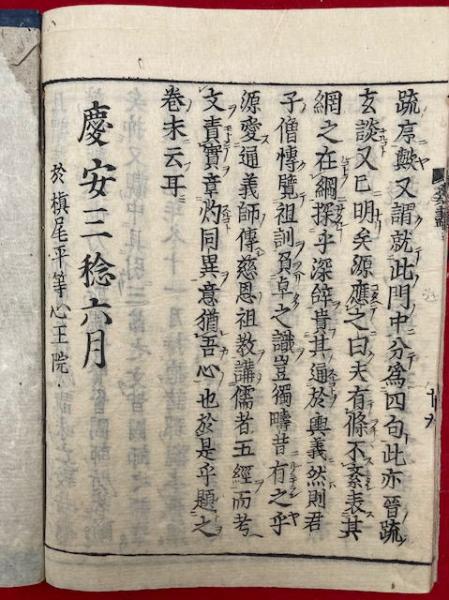 疏序歟又謂就此門中分爲四句此亦晉疏
玄談又已明矣源應之曰夫有條不紊表其
網之在綱探乎深辭貴其通於輿義然則君
子僧博覽祖訓負卓之識豈獨疇昔有之乎
源爰通義師傳慈恩祖教講儒者五經而考
文責實章灼同異意猶吾心也於是乎題之
卷末云耳
慶安三稔六月
於槇尾平等心王院